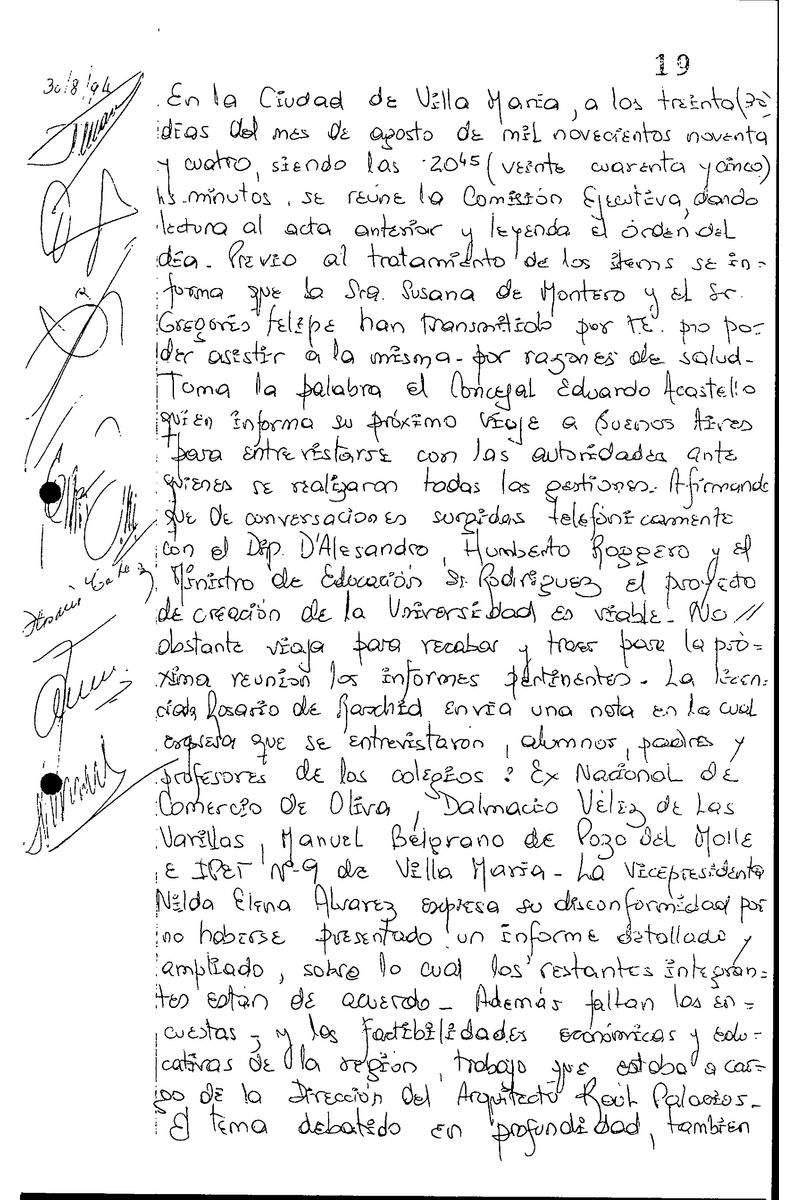 19
30/8/94
En la Ciudad de Villa María, a los treinta (30)
días del mes de agosto de mil novecientos noventa
y cuatro, siendo las 2045 (veinte cuarenta y cinco)
hs. minutos, se reune la Comisión Ejecutiva, dando
lectura al acta anterior y leyenda el órden del
día. Previo al tratamiento de los ítems se in=
forma que la Sra. Susana de Montero y el Sr.
Gregorio Felipe han transmitido por T.E. no po=
der asistir a la misma por razones de salud.
Toma la palabra el Concejal Eduardo Acastello
quien informa su próximo viaje a Buenos Aires
para entrevistarse con las autoridades ante
quienes se realizaron todas las gestiones. Afirmando
que de conversaciones surgidas telefónicamente
con el Dip. D'Alesandro, Humberto Roggero y el
Ministro de Educación Sr. Rodriguez el proyecto
de creación de la Universidad es viable. No //
obstante viaja para recabar y traer para la pró=
xima reunión los informes pertinentes. La licen=
ciada Rosario de envía una nota en la cual
expresa que se entrevistaron, alumnos, padres y
profesores de los colegios: Ex Nacional de
Comercio de Oliva, Dalmacio Vélez de Las
Varillas, Manuel Belgrano de Pozo del Molle
e IPET Nº 9 de Villa María. La Vicepresidente
Nilda Elena Alvarez expresa su disconformidad por
no haberse presentado un informe detallado y
ampliado, sobre lo cual los restantes integran=
tes están de acuerdo. Además faltan las en=
cuestas, y las factibilidades económicas y edu=
cativas de la región, trabajo que estaba a car=
go de la Dirección del Arquitecto Raúl Palacios.
El tema debatido en profundidad, también